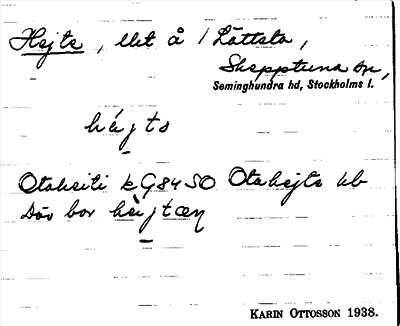 Hejte, llet å / Lättsta,
Skepptuna sn,
Seminghundra hd, Stockholms l.
hájtə
Otaheiti kG84SO Otahejte hb
Där bor hàjtæn
KARIN OTTOSSON 1938.